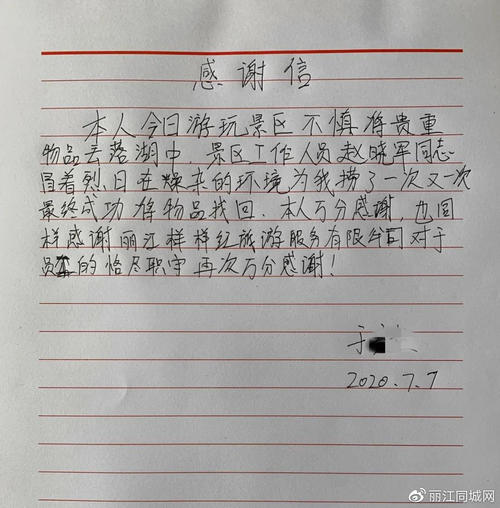 感谢信
本人今日游玩景区不慎将贵重
物品丢落湖中，景区工作人员赵晓军同志
冒着烈日在燥杂的环境为我捞了一次又一次
最终成功将物品找回。本人万分感谢，也同
样感谢丽江样样红旅游服务有限公司对于
员工的恪尽职守 再次万分感谢！
于
2020.7.7
@丽江同城网